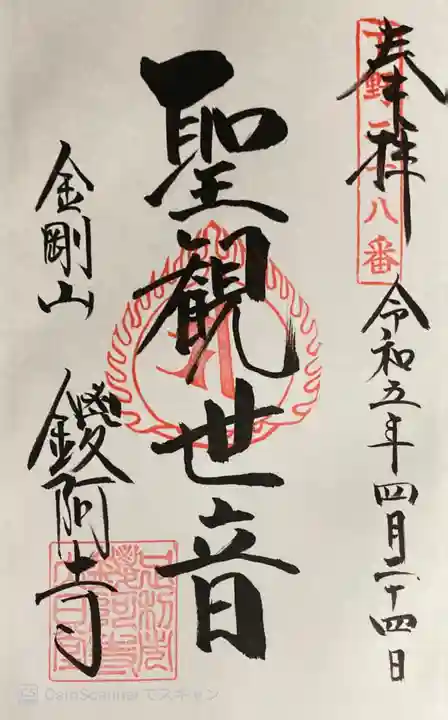 奉拝
下野二十八番
令和五年四月二十四日
聖観世音
金剛山 鑁阿寺
CS CamScanner でスキャン